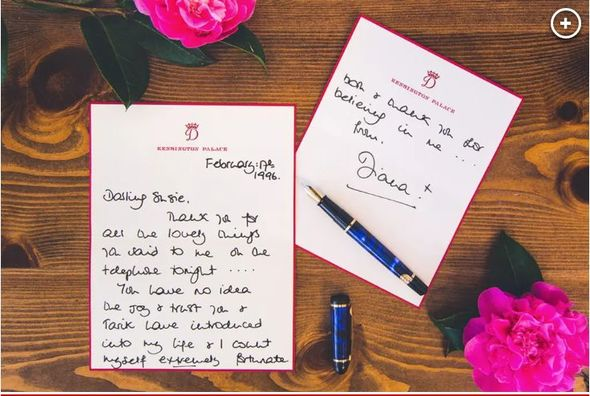 D
KENSINGTON PALACE
February: 7th
1996.
Darling Susie,
Thank you for
all the lovely things
you said to me on the
telephone tonight ....
You have no idea
the joy & trust you &
Tarik have introduced
into my life & I count
myself extremely fortunate
D
KENSINGTON PALACE
both & thank you for
believing in me ....
from,
Diana x